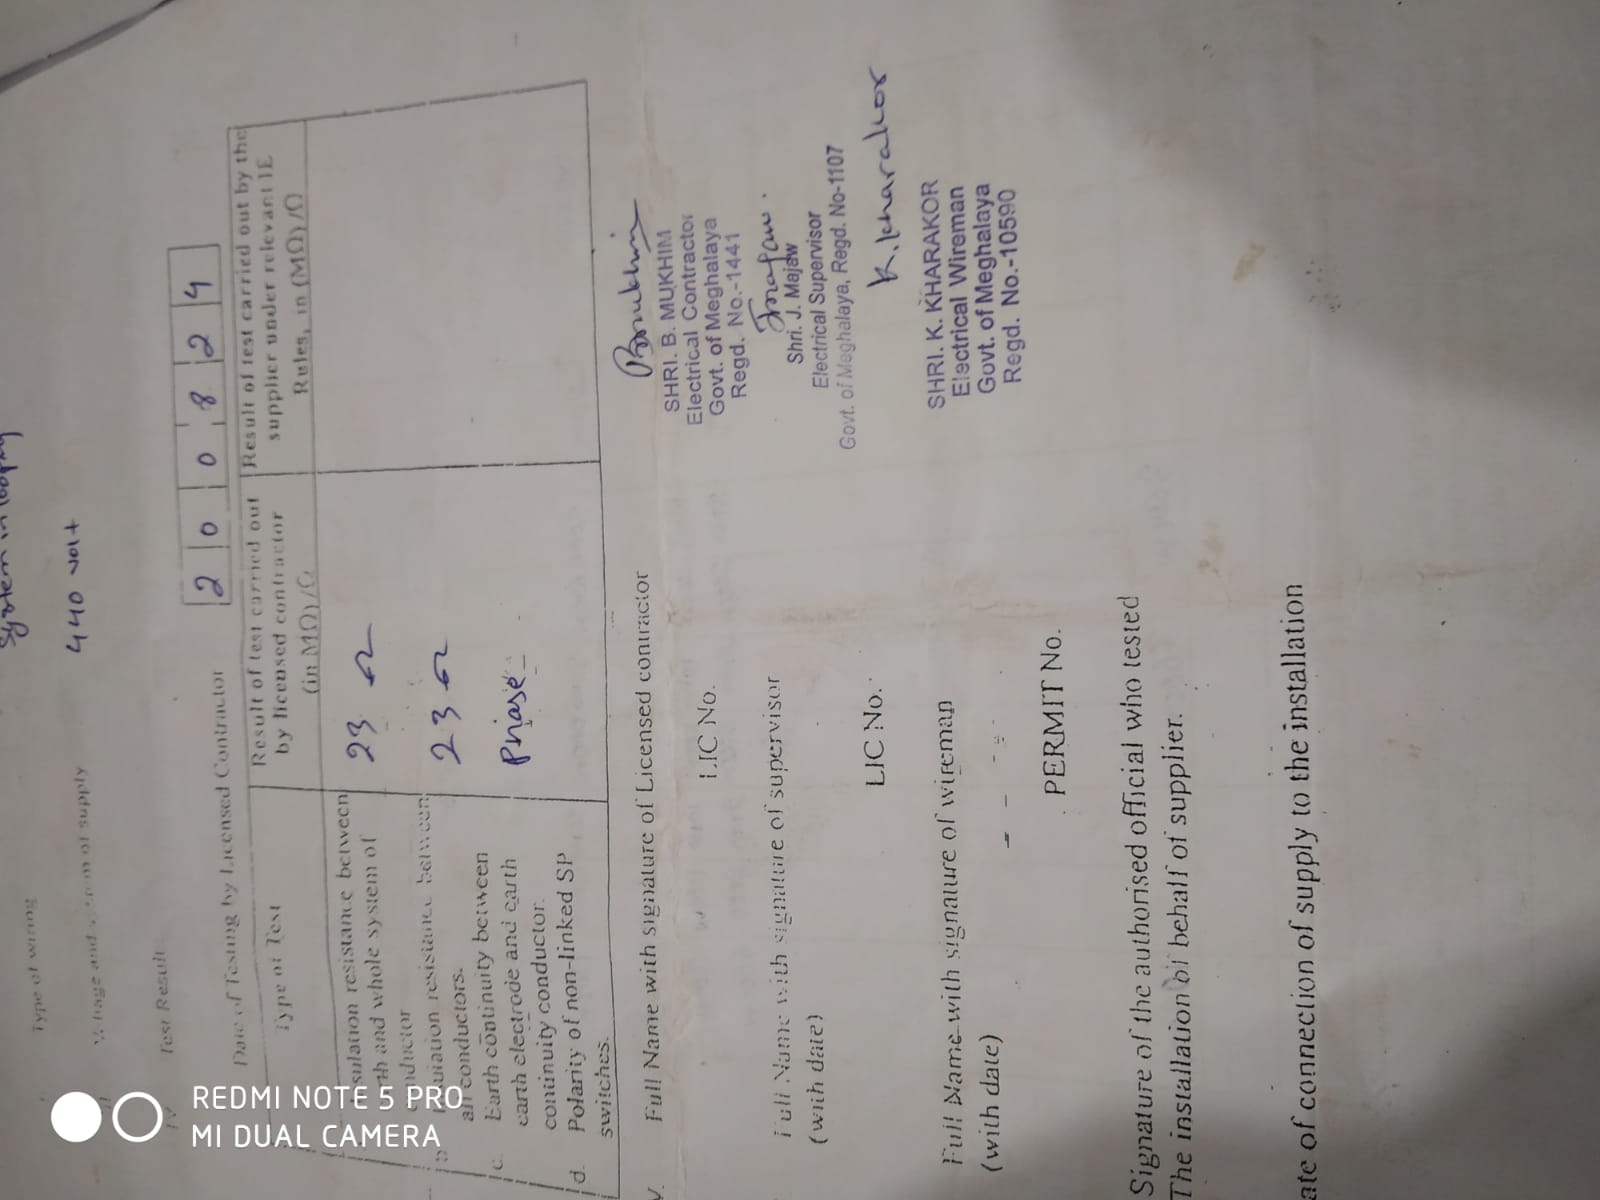 Type of wiring
System in looping
Voltage and system of supply
440 volt
IV Test Result
Date of Testing by Licensed Contractor
2 0 0 8 2 4
Type of Test
Result of test carried out
by licensed contractor
(in MΩ)/Ω
Result of test carried out by the
supplier under relevant IE
Rules, in (MΩ)/Ω
sulation resistance between
rth and whole system of
nductor
23
b
ulation resistance between
all conductors.
23
c. Earth continuity between
earth electrode and earth
continuity conductor.
Phase
d. Polarity of non-linked SP
switches.
V. Full Name with signature of Licensed contractor
Bmukhim
SHRI. B. MUKHIM
Electrical Contractor
Govt. of Meghalaya
Regd. No.-1441
LIC No.
Full Name with signature of supervisor
(with date)
Jmajaw.
Shri. J. Majaw
Electrical Supervisor
Govt. of Meghalaya, Regd. No-1107
LIC No.
K. kharakor
Full Name with signature of wireman
(with date)
SHRI. K. KHARAKOR
Electrical Wireman
Govt. of Meghalaya
Regd. No.-10590
PERMIT No.
Signature of the authorised official who tested
The installation of behalf of supplier.
ate of connection of supply to the installation
REDMI NOTE 5 PRO
MI DUAL CAMERA